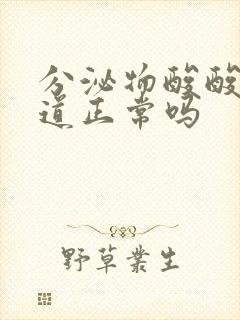 分泌物酸酸
道正常吗
野草丛生